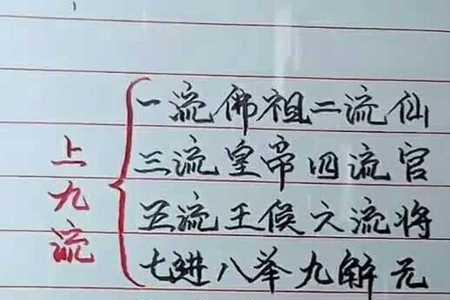 上九流
一流佛祖二流仙
三流皇帝四流官
五流王侯六流将
七进八举九解元